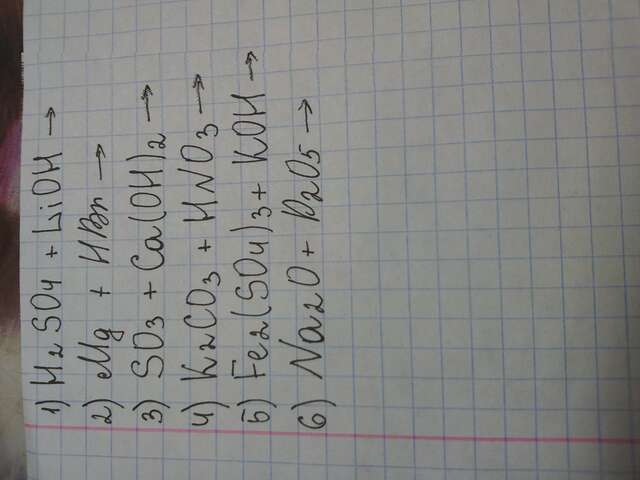 1) H2SO4 + LiOH →
2) Mg + HBr →
3) SO3 + Ca(OH)2 →
4) K2CO3 + HNO3 →
5) Fe2(SO4)3 + KOH →
6) Na2O + P2O5 →